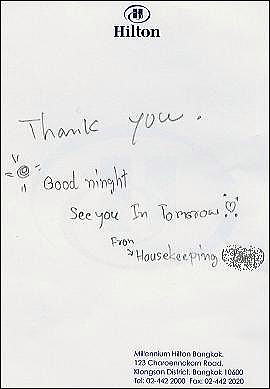 Hilton
Thank you.
Good ninght
See you In Tomorrow
From
Housekeeping
Millennium Hilton Bangkok,
123 Charoennakorn Road,
Klongsan District, Bangkok 10600
Tel: 02-442 2000 Fax: 02-442 2020